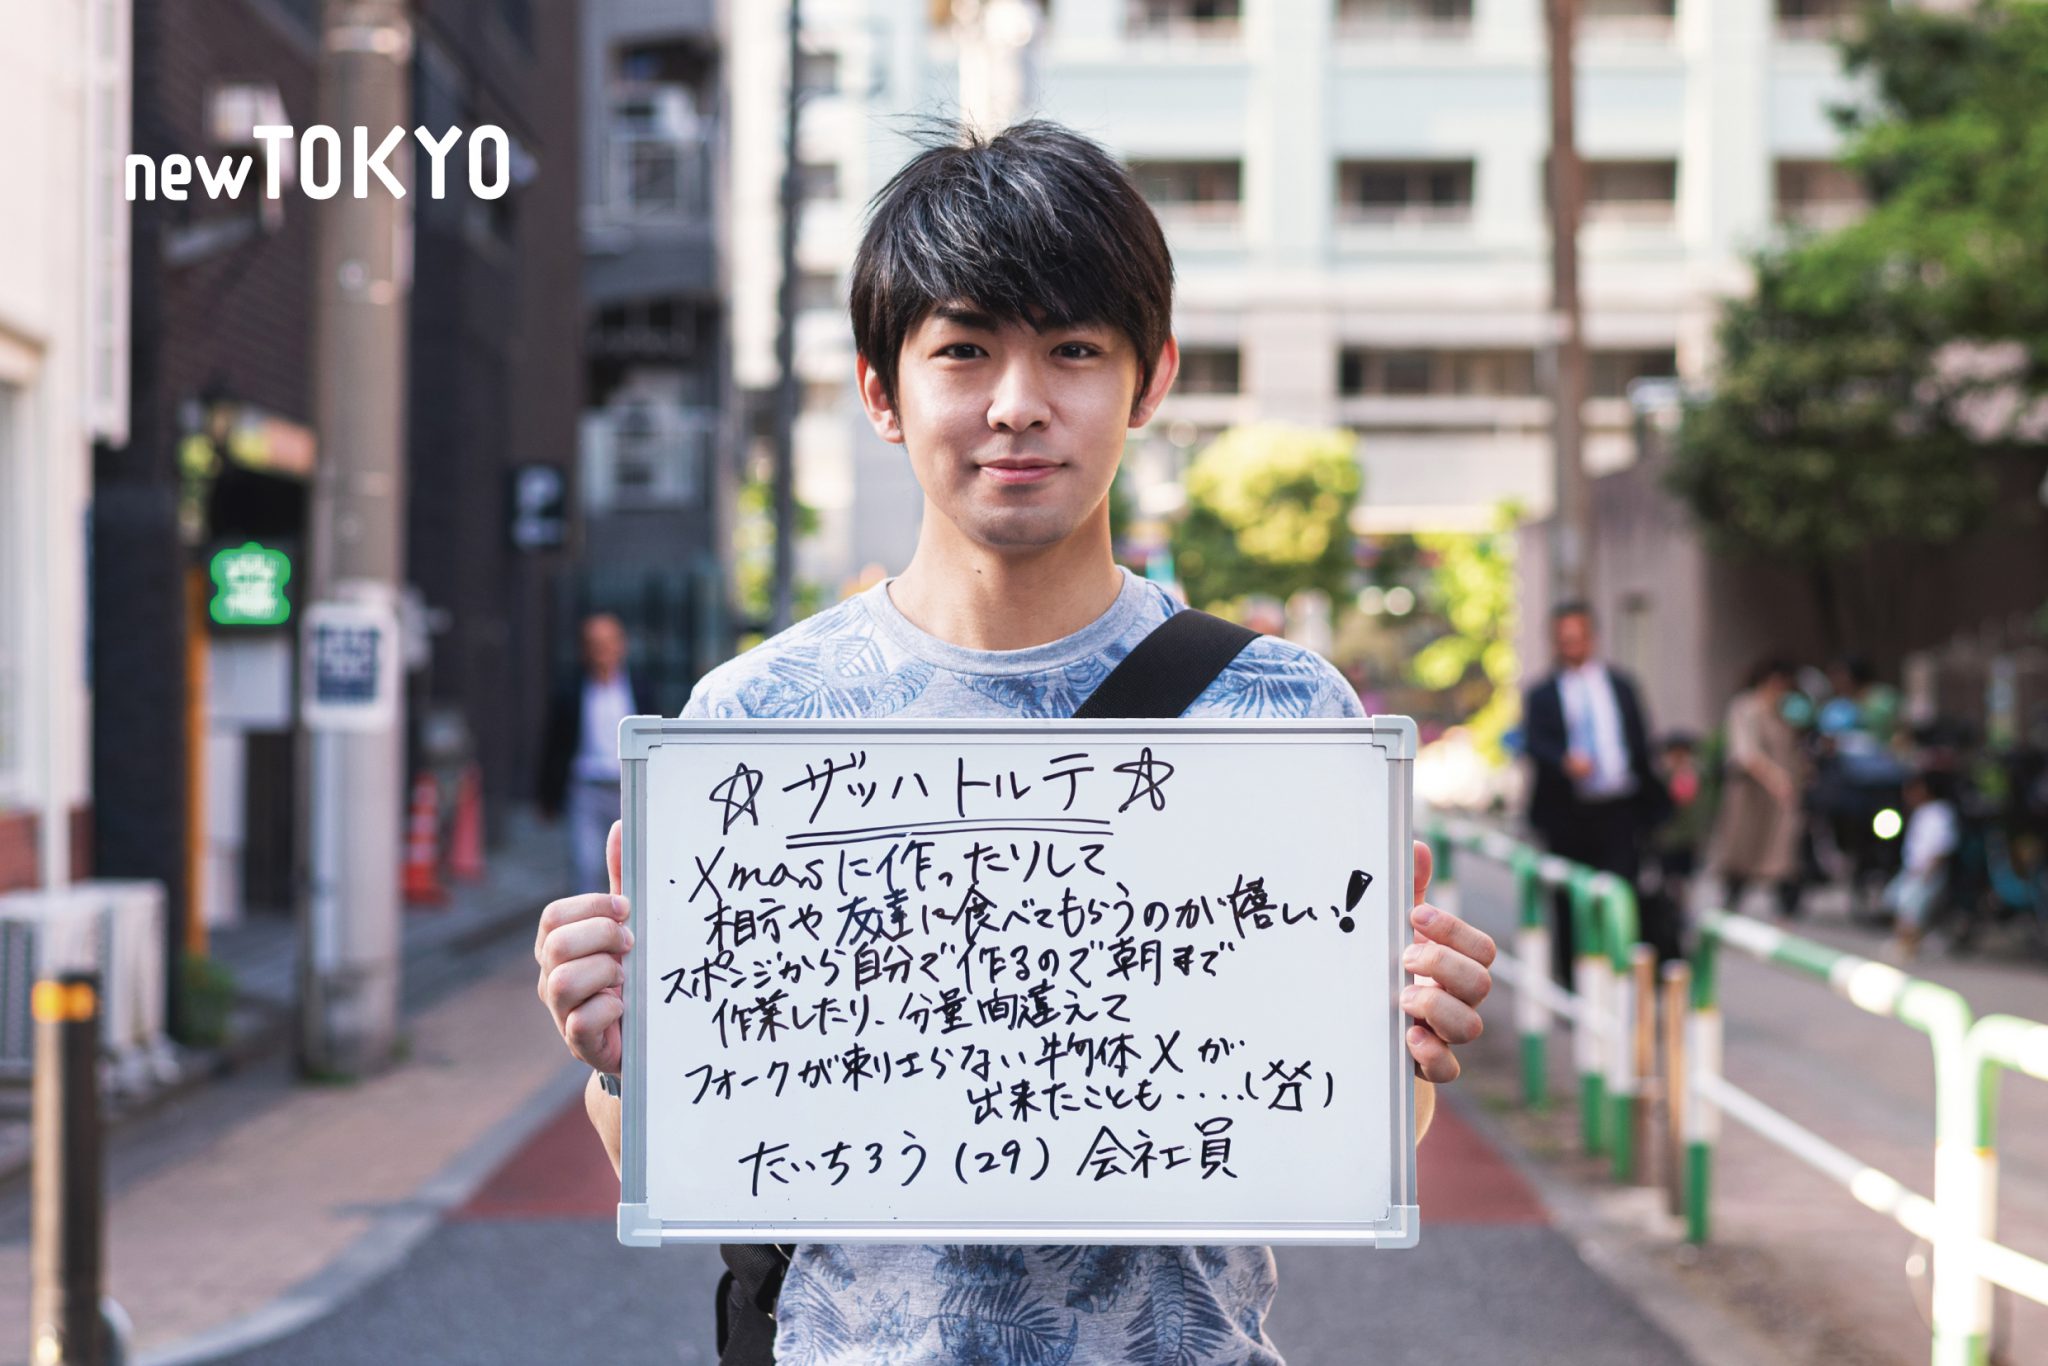 newTOKYO
☆ザッハトルテ☆
・Xmasに作ったりして
相方や友達に食べてもらうのが嬉しい!
スポンジから自分で作るので朝まで
作業したり、分量間違えて
フォークが刺さらない物体Xが
出来たことも・・・・(××)
だいちろう(29)会社員